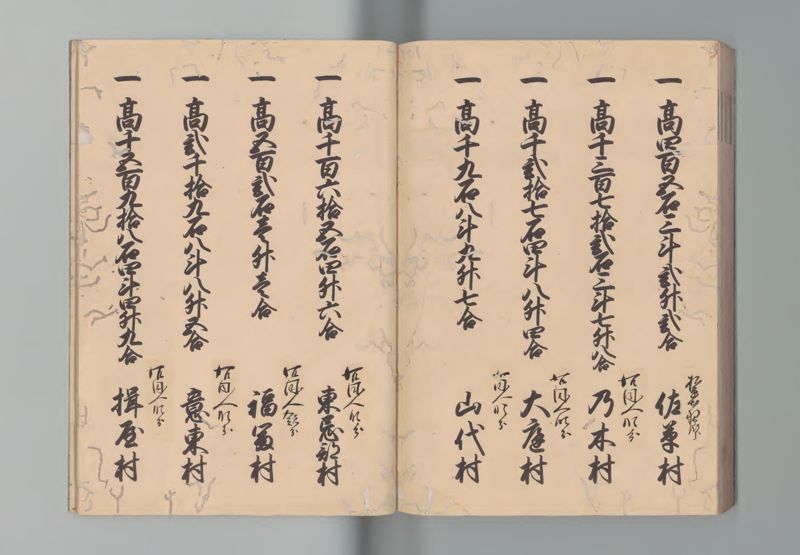 一 高四百五石三斗弐升弐合
佐草村
一 高千三百七拾弐石三斗七升八合
乃木村
一 高千弐拾七石四斗八升四合
大庭村
一 高千九石八斗九升七合
山代村
一 高千百六拾五石四升六合
東忌部村
一 高五百弐石壱升壱合
福冨村
一 高弐千拾九石八斗八升五合
意東村
一 高千五百九拾八石四斗四升九合
揖屋村